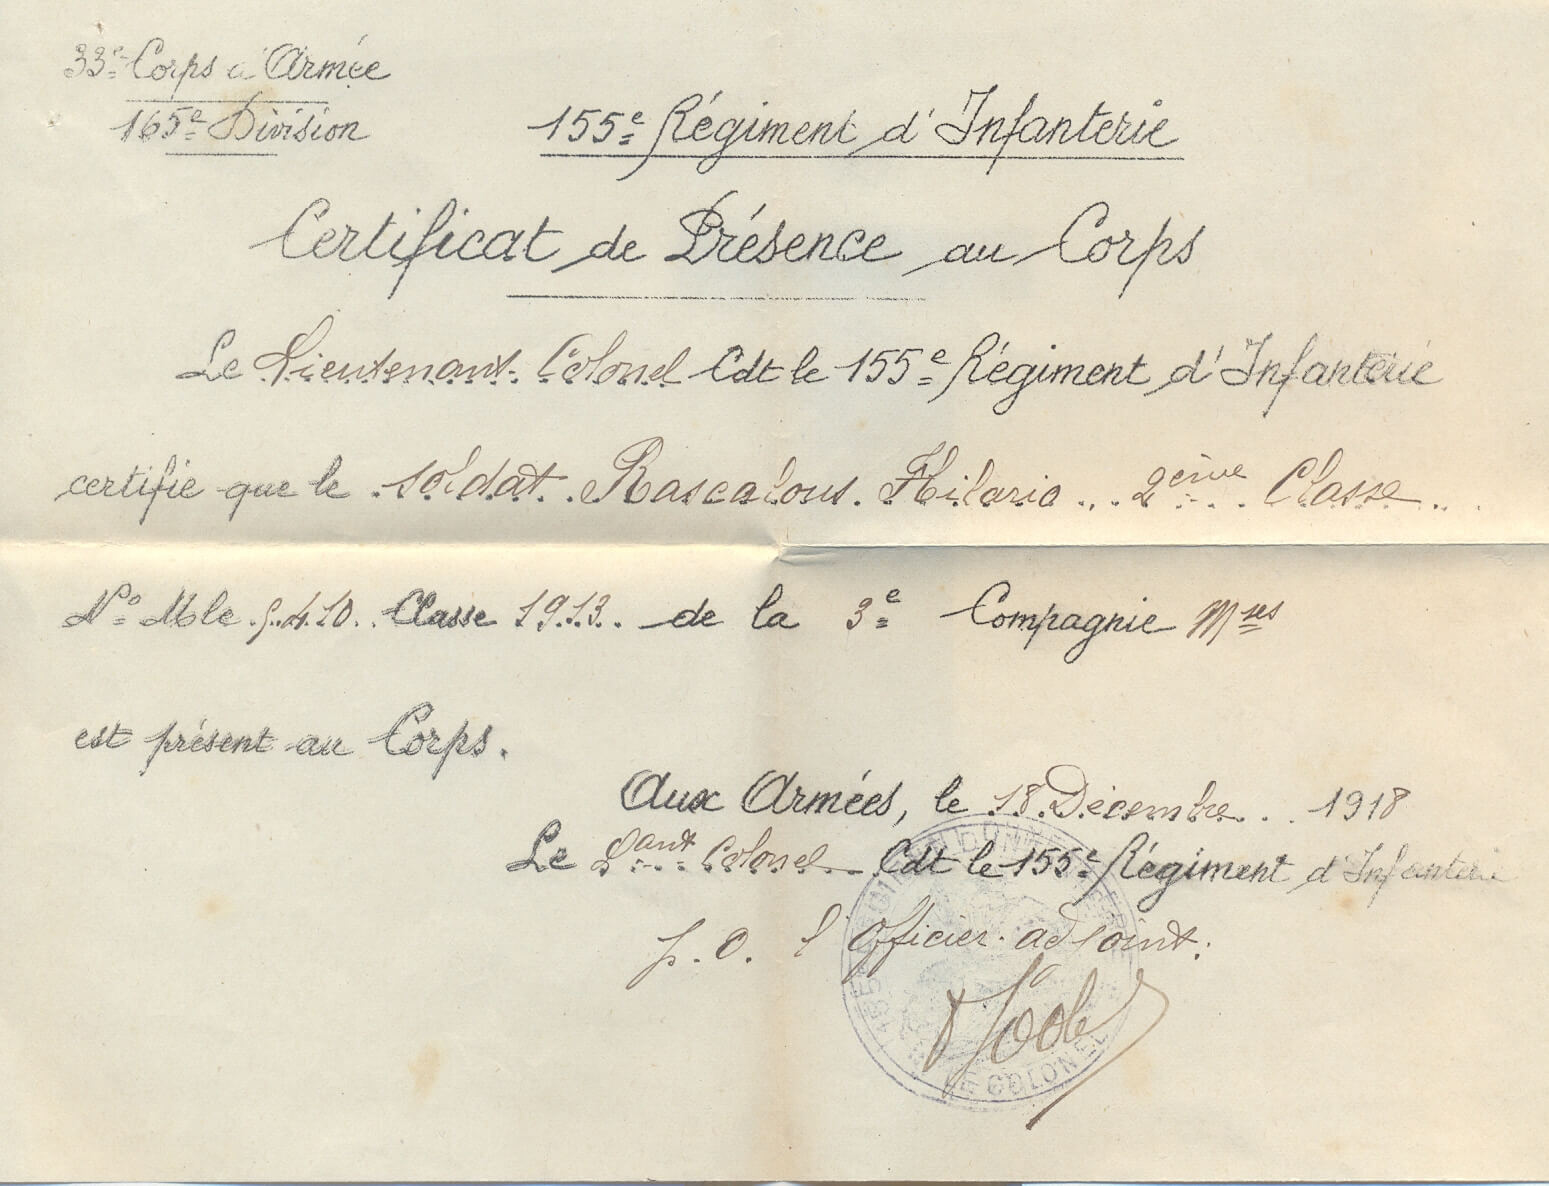 33e Corps d'Armée
165e Division
155e Régiment d'Infanterie
Certificat de Présence au Corps
Le Lieutenant Colonel Cdt le 155e Régiment d'Infanterie
certifie que le soldat Rascalous Hilario 2ème Classe
No Mle 5410 Classe 1913 de la 3e Compagnie Mses
est présent au Corps.
Aux Armées, le 18 Décembre 1918
Le Lant Colonel Cdt le 155e Régiment d'Infanterie
p.o. l'officier adjoint:
155 RÉGIMENT D'INFANTERIE
LE COLONEL